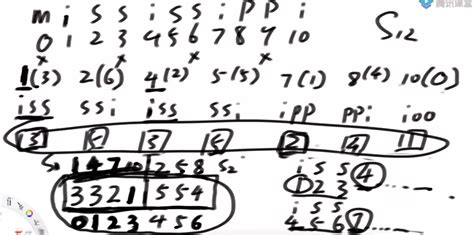 腾讯课堂
m i s s i s s i p p i
0 1 2 3 4 5 6 7 8 9 10 S12
1(3) 2(6) 4(2) 5(5) 7(1) 8(4) 10(0)
iss ssi iss ssi ipp ppi i00
3 5 3 5 2 4 1
S1 1 4 7 10 2 5 8 S2
i s s 4
3 3 2 1 5 5 4
1 2 3 ------
i s s
0 1 2 3 4 5 6
4 5 6 7 ------